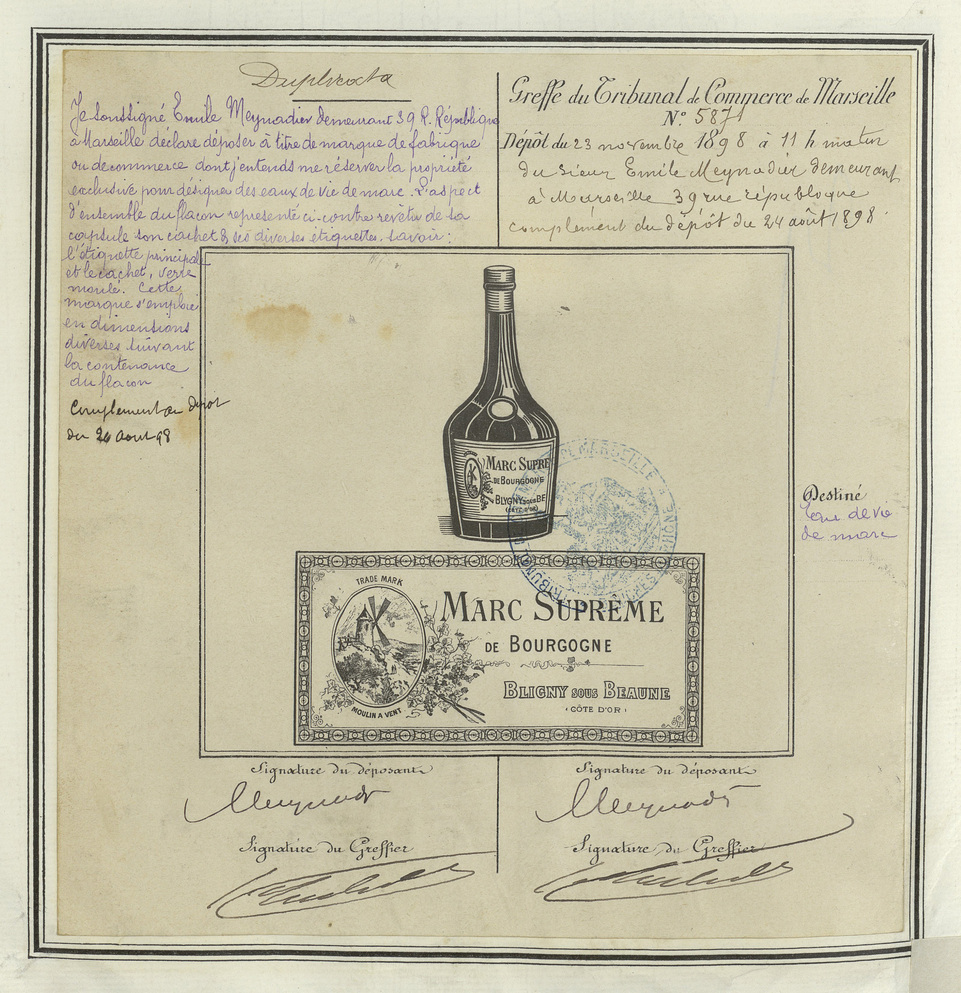 Duplicata
Je soussigné Emile Meynadier demeurant 39 R. République
à Marseille déclare déposer à titre de marque de fabrique
ou de commerce dont j'entends me réserver la propriété
exclusive pour désigner des eaux de vie de marc. L'aspect
d'ensemble du flacon représenté ci-contre revêtu de sa
capsule son cachet & ses diverses étiquettes savoir:
l'étiquette principale
et le cachet, verre
moulé. Cette
marque s'emploie
en dimensions
diverses suivant
la contenance
du flacon
Complement au depot
du 24 Aout 98
Greffe du Tribunal de Commerce de Marseille
N° 5871
Dépôt du 23 novembre 1898 à 11 h matin
du sieur Emile Meynadier demeurant
à Marseille 39 rue république
complement du dépôt du 24 août 1898
MARC SUPRE
DE BOURGOGNE
BLIGNY SOUS BE
(CÔTE D'OR)
Destiné
Eau de vie
de marc
TRADE MARK
MOULIN A VENT
MARC SUPRÊME
DE BOURGOGNE
BLIGNY SOUS BEAUNE
(CÔTE D'OR)
Signature du déposant
Meynadier
Signature du Greffier
Signature du déposant
Meynadier
Signature du Greffier